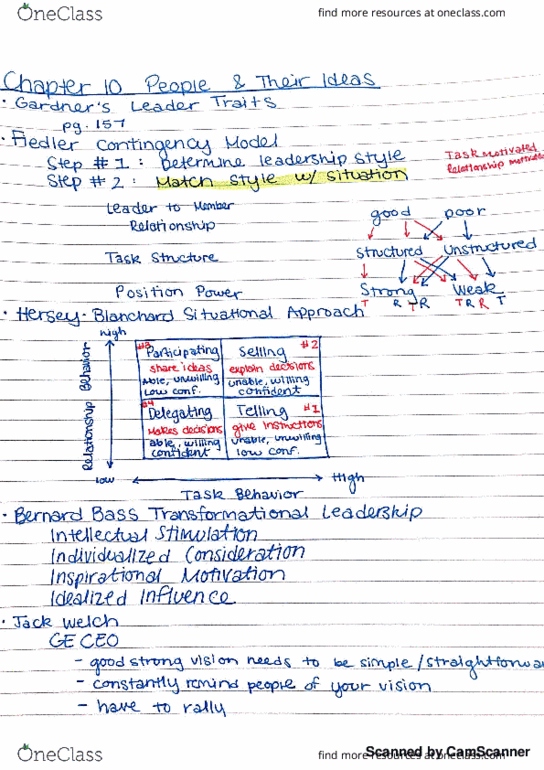 OneClass
find more resources at oneclass.com
Chapter 10 People & Their Ideas
· Gardner's Leader Traits
pg. 157
· Fiedler Contingency Model
Step #1: Determine leadership style
Step #2: Match style w/ situation
Task motivated
Relationship motivate
Leader to Member
Relationship
good poor
Task Structure
Structured Unstructured
Position Power
Strong Weak
T R T R T R R T
· Hersey-Blanchard Situational Approach
high
Relationship Behavior
#3 Participating
share ideas
Able, unwilling
Low conf.
Selling #2
explain decisions
unable, willing
confident
#4
Delegating
Makes decisions
able, willing
confident
Telling #1
give instructions
unable, unwilling
low conf.
low
High
Task Behavior
· Bernard Bass Transformational Leadership
Intellectual Stimulation
Individualized Consideration
Inspirational Motivation
Idealized Influence
· Jack Welch
GE CEO
- good strong vision needs to be simple/straightforwa
- constantly remind people of your vision
- have to rally
OneClass
find more resources at oneclass.com
Scanned by CamScanner